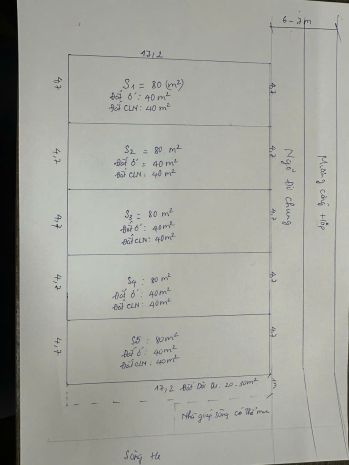 6-7m
17,2
S1 = 80 (m²)
Đất ở : 40 m²
Đất CLN : 40 m²
4,7
4,7
S2 = 80 m²
Đất ở = 40 m²
Đất CLN : 40 m²
4,7
4,7
S3 = 80 m²
Đất ở : 40 m²
Đất CLN : 40 m²
4,7
4,7
S4 : 80 m²
Đất ở : 40 m²
Đất CLN : 40 m²
4,7
4,7
S5 : 80 m²
Đất ở : 40 m²
Đất CLN : 40 m²
4,7
4,7
Ngõ đi chung
Mương công
17,2
1m
Nhà giáp sông có thể mua
Sông